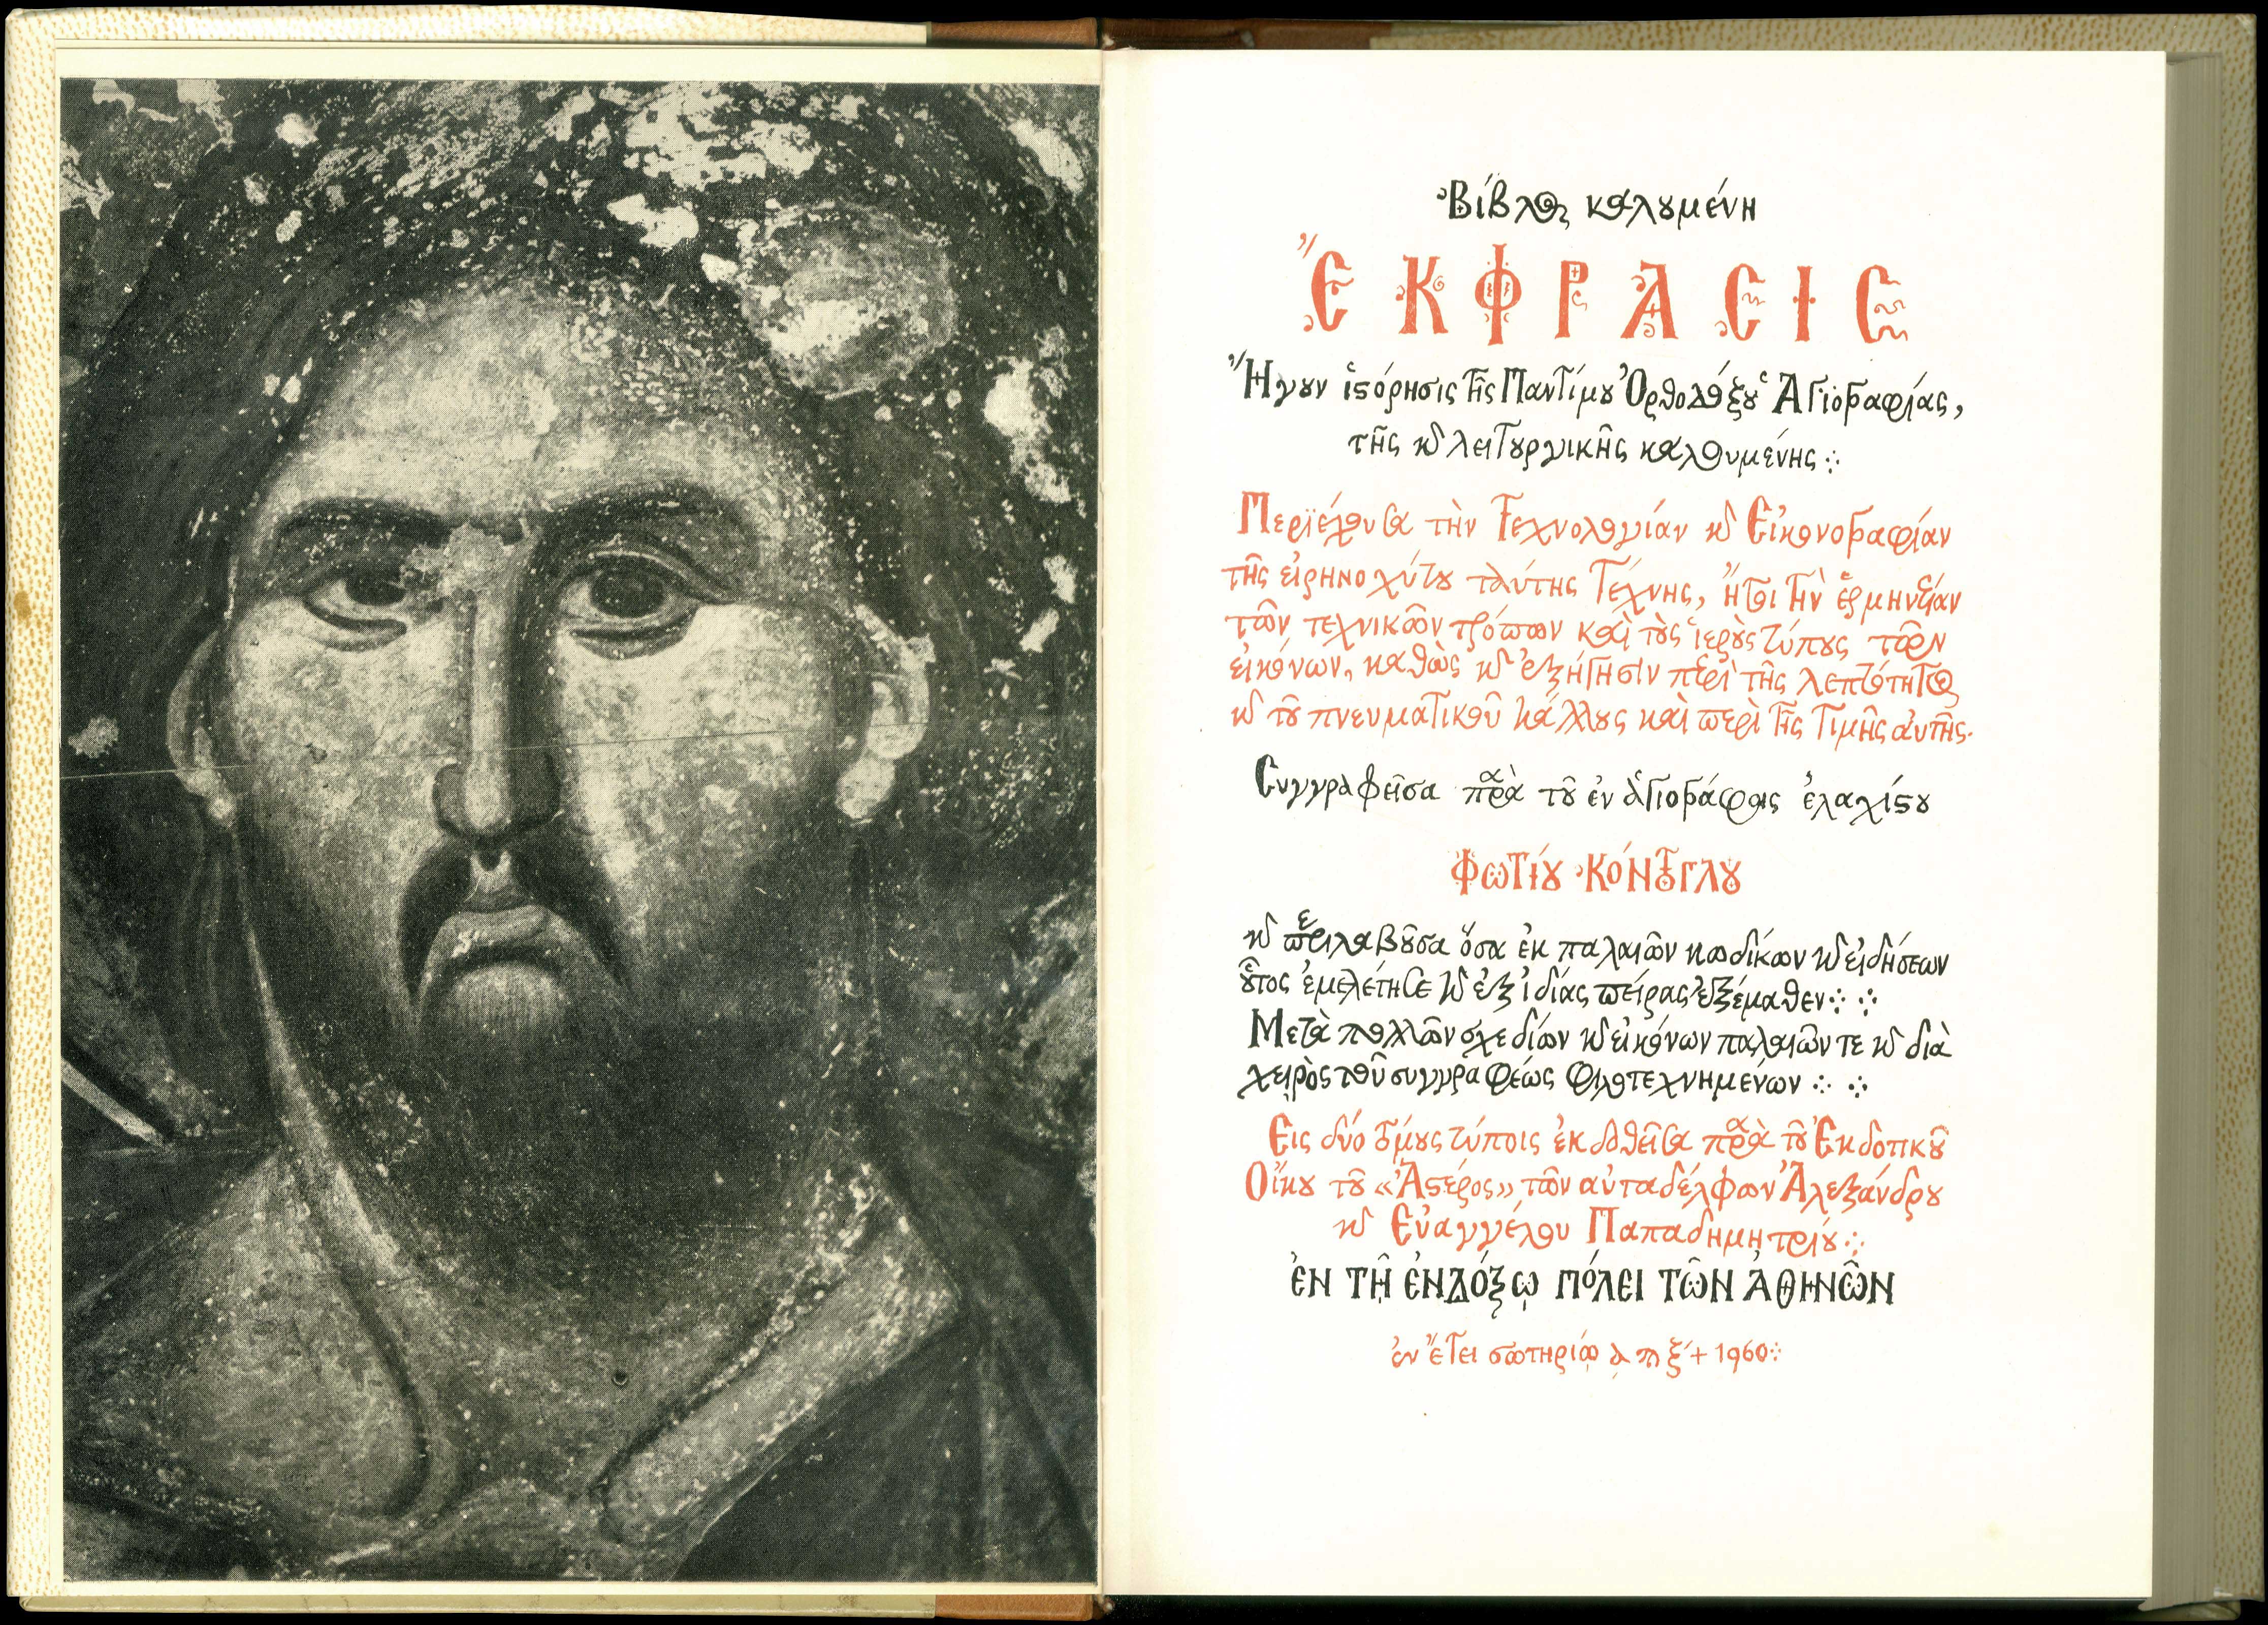 Βίβλος καλουμένη
ἜΚΦΡΑСΙС
Ἤγουν ἱστόρησις τῆς Παντίμου Ὀρθοδόξου Ἁγιογραφίας,
τῆς καὶ λειτουργικῆς καλουμένης
Περιέχουσα τὴν Τεχνολογίαν καὶ Εἰκονογραφίαν
τῆς εἰρηνοχύτου ταύτης Τέχνης, ἤτοι τὴν ἑρμηνείαν
τῶν τεχνικῶν τρόπων καὶ τοὺς ἱεροὺς τύπους τῶν
εἰκόνων, καθὼς καὶ ἐξήγησιν περὶ τῆς λεπτότητος
καὶ τοῦ πνευματικοῦ κάλλους καὶ περὶ τῆς τιμῆς αὐτῆς.
Συγγραφεῖσα παρὰ τοῦ ἐν ἁγιογράφοις ἐλαχίστου
ΦωΤίου ΚόΝΤΟΓΛου
καὶ περιλαβοῦσα ὅσα ἐκ παλαιῶν κωδίκων καὶ εἰδήσεων
οὗτος ἐμελέτησε καὶ ἐξ ἰδίας πείρας ἐξέμαθεν
Μετὰ πολλῶν σχεδίων καὶ εἰκόνων παλαιῶν τε καὶ διὰ
χειρὸς τοῦ συγγραφέως φιλοτεχνημένων
Εἰς δύο τόμους τύποις ἐκδοθεῖσα παρὰ τοῦ Ἐκδοτικοῦ
Οἴκου τοῦ «Ἀστέρος» τῶν αὐταδέλφων Ἀλεξάνδρου
καὶ Εὐαγγέλου Παπαδημητρίου
ἐΝ Τῇ ἐΝΔόξῳ ΠόΛΕΙ ΤῶΝ ἈΘΗΝῶΝ
ἐν ἔτει σωτηρίῳ ͵αϡξ´ + 1960